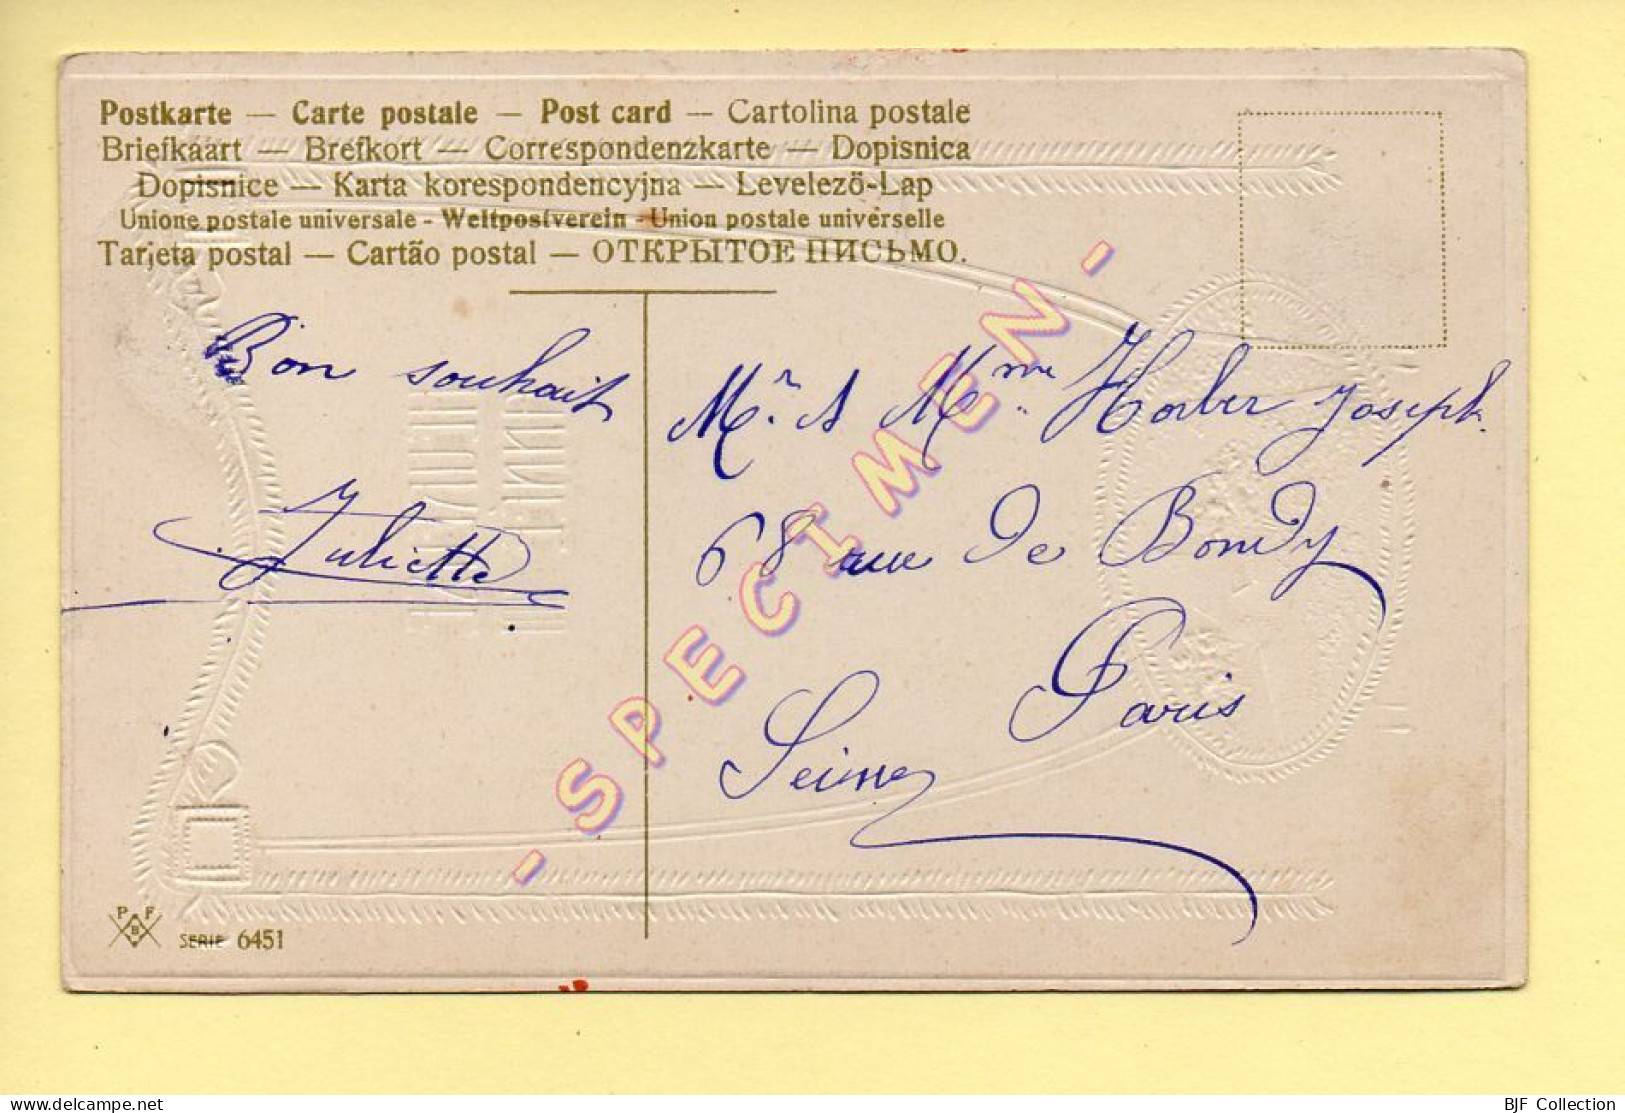 Postkarte — Carte postale — Post card — Cartolina postale
Briefkaart — Brefkort — Correspondenzkarte — Dopisnica
Dopisnice — Karta korespondencyjna — Levelező-Lap
Unione postale universale - Weltpostverein - Union postale universelle
Tarjeta postal — Cartão postal — ОТКРЫТОЕ ПИСЬМО.
Bon souhait
Juliette
Mr. & Mme Horber Joseph.
68 rue de Bondy
Paris
Seine
- SPECIMEN -
P F
B
SERIE 6451
www.delcampe.net
BJF Collection